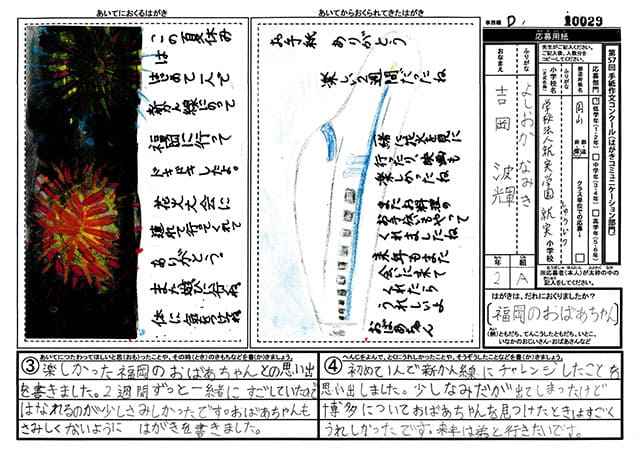 あいてにおくるはがき
この夏休み
は
はじめて1人で
新かん線にのって
福岡に行って
ドキドキしたよ。
花火大会に
連れて行ってくれて
ありがとう。
また遊びに行くね。
体に気をつけてね
あいてからおくられてきたはがき
お手紙 ありがとう
楽しい2週間だったね
一緒に花火を見に
行ったり、映画も
楽しかったね
またお料理の
お手伝いもやって
くれましたね
来年もまた
会いに来て
くれたら
うれしいよ
おばあちゃん
事務欄 D / 10029
応募用紙
第57回 手紙作文コンクール(はがきコミュニケーション部門)
先生がご記入ください。
ご記入後、人数分を
コピーしてください。
応募部門
低学年(1・2年)
中学年(3・4年)
高学年(5・6年)
都道府県名
岡山
クラス単位での応募
ふりがな
小学校名
(正式名称)
学校法人 就実学園 就実 小学校
ふりがな
よしおか なみき
おなまえ
吉岡 波輝
年 組
2 A
※応募者(本人)が太枠の中の
記入をしてください。
はがきは、だれにおくりましたか?
福岡のおばあちゃん
(例)ともだち、てんこうしたともだち、いとこ、
いなかのおじいさん・おばあさんなど
③
あいてにつたわってほしいと思(おも)ったことや、その時(とき)のきもちなどを書(か)きましょう。
楽しかった福岡のおばあちゃんとの思い出
を書きました。2週間ずっと一緒にすごしていたので
はなれるのが少しさみしかったです。おばあちゃんも
さみしくないように はがきを書きました。
④
へんじをよんで、とくにうれしかったことや、そうぞうしたことなどを書(か)きましょう。
初めて1人で新かん線にチャレンジしたことを
思い出しました。少しなみだが出てしまったけど
博多についておばあちゃんを見つけたときはすごく
うれしかったです。来年は弟と行きたいです。